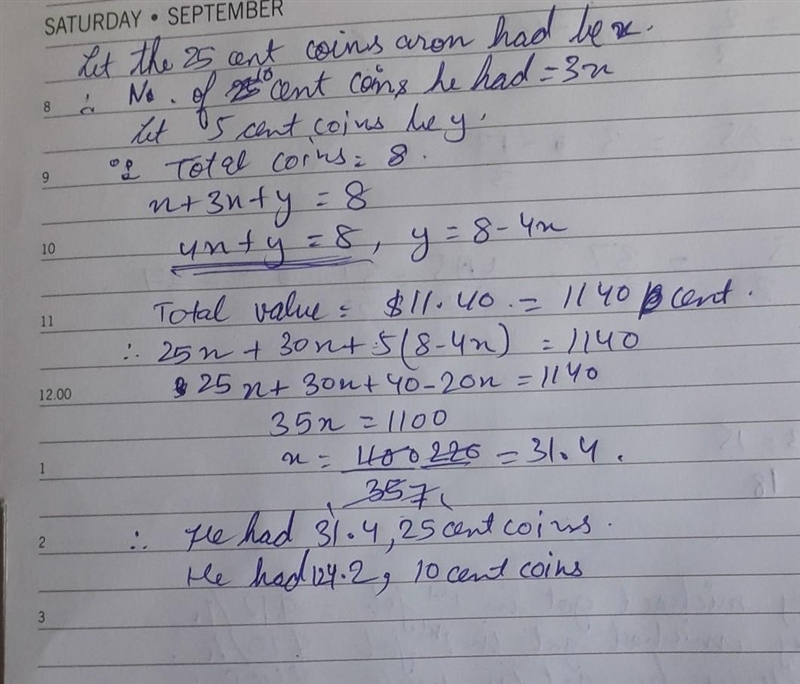 SATURDAY • SEPTEMBER
Let the 25 cent coins aron had be x.
8 ∴ No. of 10 cent coins he had = 3x
Let 5 cent coins be y.
9 ∴ Total coins = 8.
x + 3x + y = 8
10 4x + y = 8, y = 8 - 4x
11 Total value = $11.40 = 1140 cent.
∴ 25x + 30x + 5(8 - 4x) = 1140
12.00 25x + 30x + 40 - 20x = 1140
35x = 1100
1 x = 1100 220 = 31.4.
35 7
2 ∴ He had 31.4, 25 cent coins.
He had 124.2, 10 cent coins
3